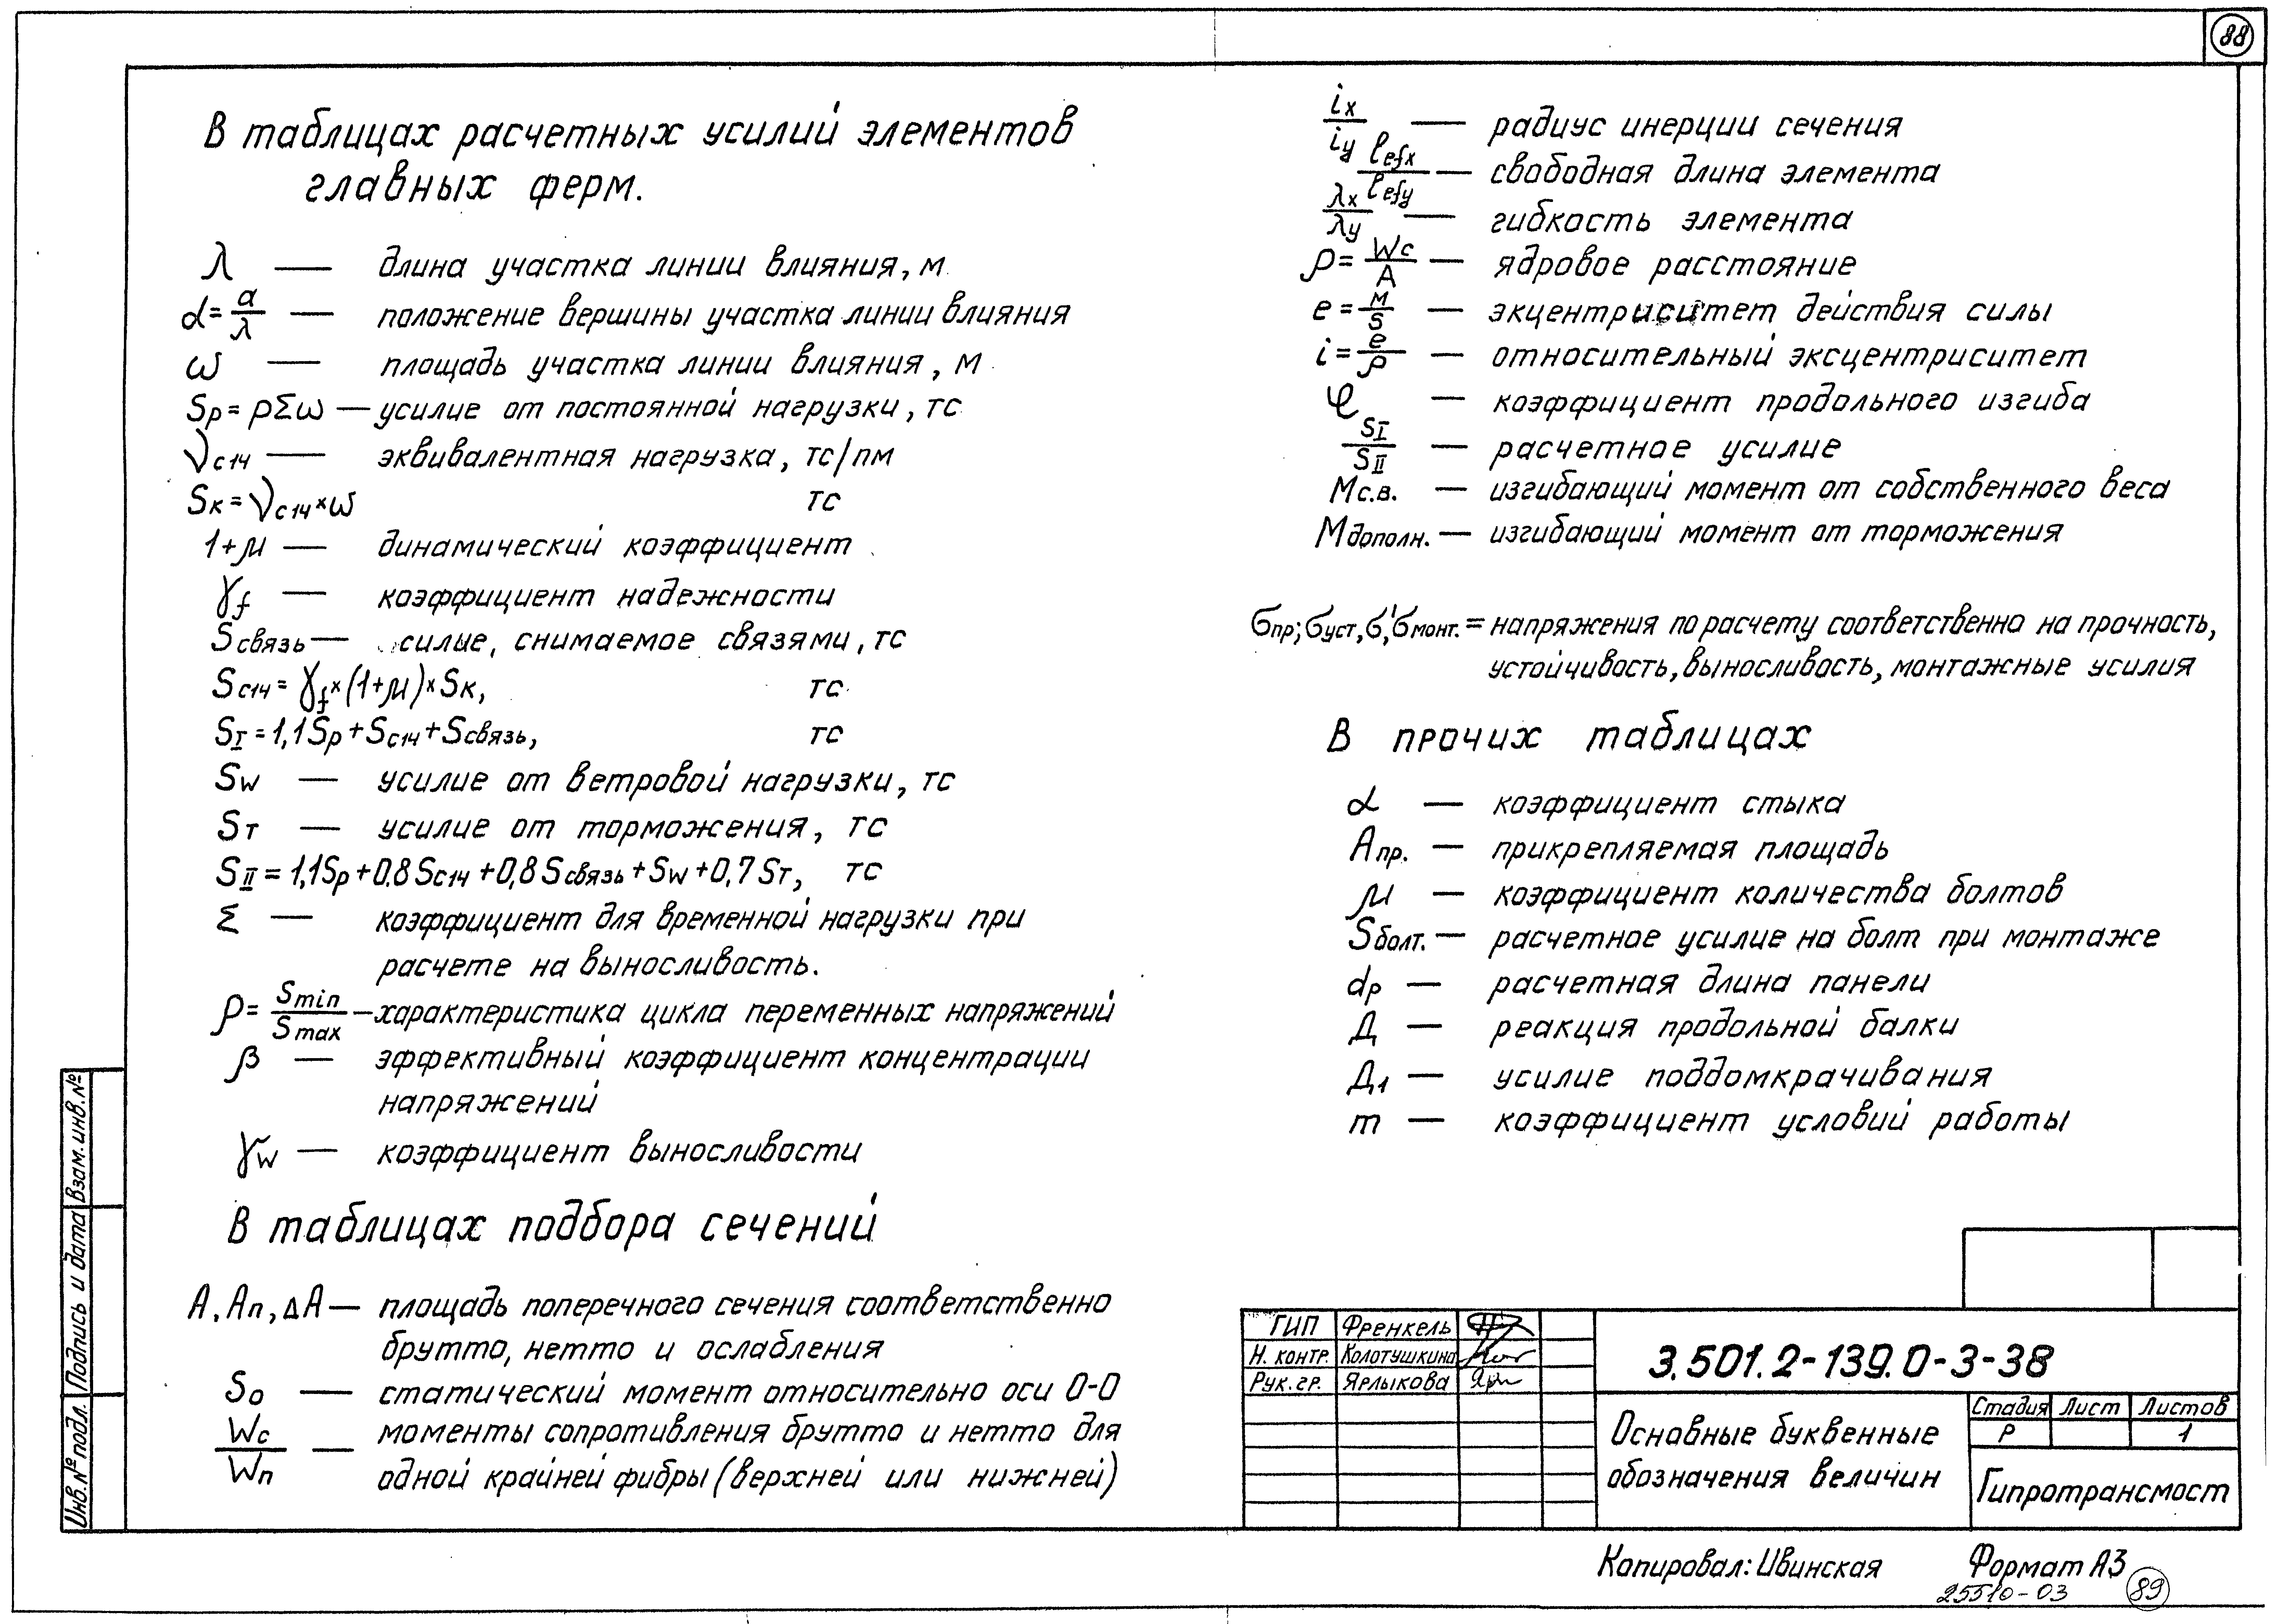 88
В таблицах расчетных усилий элементов
главных ферм.
λ — длина участка линии влияния, м
α = a/λ — положение вершины участка линии влияния
ω — площадь участка линии влияния, м
Sp = pΣω — усилие от постоянной нагрузки, тс
νс14 — эквивалентная нагрузка, тс/пм
Sк = νс14 × ω тс
1+μ — динамический коэффициент
γf — коэффициент надежности
Sсвязь — силые, снимаемое связями, тс
Sс14 = γf × (1+μ) × Sк, тс
SI = 1,1Sp + Sс14 + Sсвязь, тс
Sw — усилие от ветровой нагрузки, тс
Sт — усилие от торможения, тс
SII = 1,1Sp + 0.8Sс14 + 0,8Sсвязь + Sw + 0,7Sт, тс
Σ — коэффициент для временной нагрузки при
расчете на выносливость.
ρ = Smin/Smax — характеристика цикла переменных напряжений
β — эффективный коэффициент концентрации
напряжений
γw — коэффициент выносливости
В таблицах подбора сечений
А, Ап, ΔА — площадь поперечного сечения соответственно
брутто, нетто и ослабления
So — статический момент относительно оси 0-0
Wc/Wп — моменты сопротивления брутто и нетто для
одной крайней фибры (верхней или нижней)
ix/iy — радиус инерции сечения
lefx/lefy — свободная длина элемента
λx/λy — гибкость элемента
ρ = Wc/A — ядровое расстояние
e = м/s — экцентриситет действия силы
i = e/ρ — относительный эксцентриситет
φ — коэффициент продольного изгиба
SI/SII — расчетное усилие
Мс.в. — изгибающий момент от собственного веса
Мдополн. — изгибающий момент от торможения
σпр; σуст, σ', σмонт. = напряжения по расчету соответственно на прочность,
устойчивость, выносливость, монтажные усилия
В прочих таблицах
α — коэффициент стыка
Апр. — прикрепляемая площадь
μ — коэффициент количества болтов
Sболт. — расчетное усилие на болт при монтаже
dp — расчетная длина панели
Д — реакция продольной балки
Д1 — усилие поддомкрачивания
m — коэффициент условий работы
Инв.№ подл. Подпись и дата Взам.инв.№
ГИП Френкель
Н. контр. Колотушкина
Рук. гр. Ярлыкова
3.501.2-139.0-3-38
Основные буквенные
обозначения величин
Стадия Лист Листов
Р 1
Гипротрансмост
Копировал: Ивинская Формат А3
25510-03 89